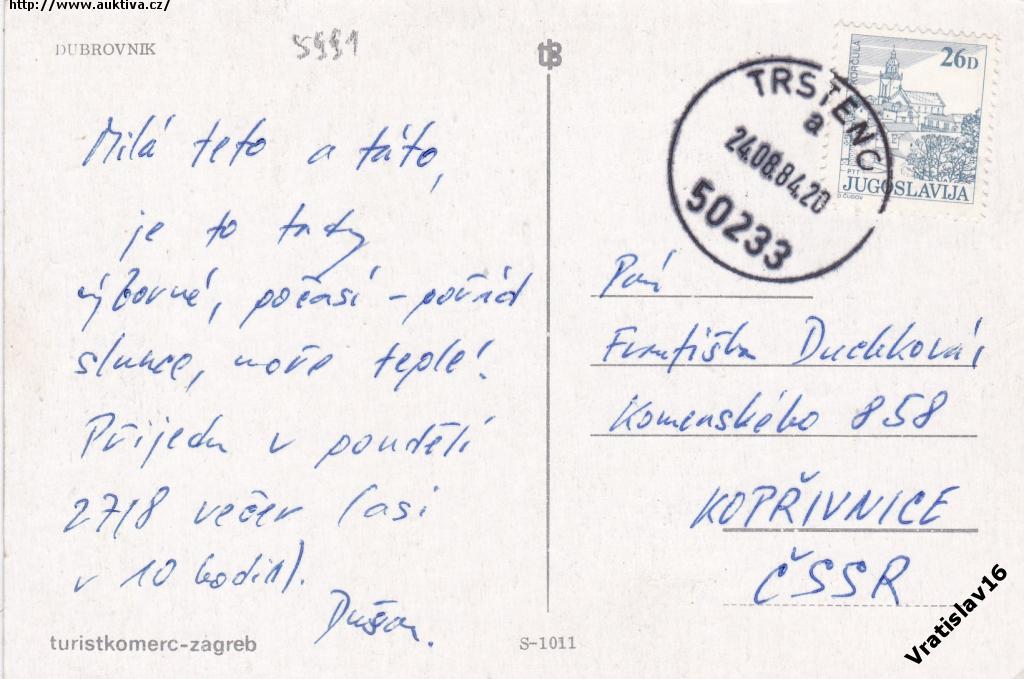 http://www.auktiva.cz/
DUBROVNIK
5991
Milá teto a táto,
je to tady
výborné, počasí - pořád
slunce, moře teplé!
Přijedu v pondělí
27/8 večer (asi
v 10 hodin).
Dušan.
turistkomerc-zagreb
S-1011
TRSTENO
a
24.08.84.20
50233
KORČULA
26D
PTT
JUGOSLAVIJA
D.ČUDOV
Paní
Františka Duchková,
Komenského 858
KOPŘIVNICE
ČSSR
Vratislav16